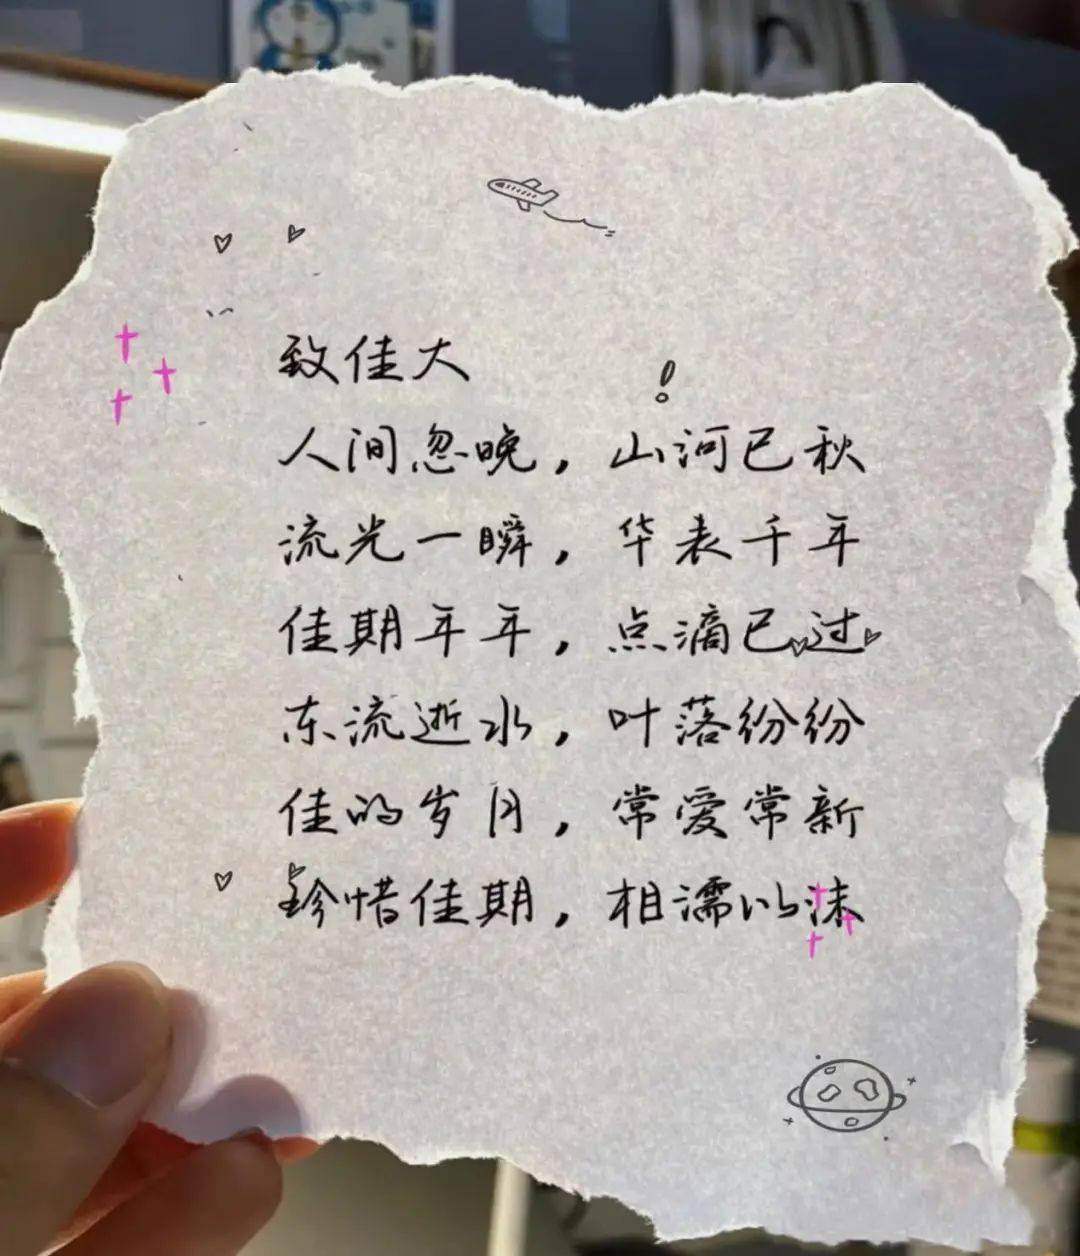 致佳大
!
人间忽晚，山河已秋
流光一瞬，华表千年
佳期年年，点滴已过
东流逝水，叶落纷纷
佳的岁月，常爱常新
珍惜佳期，相濡以沫